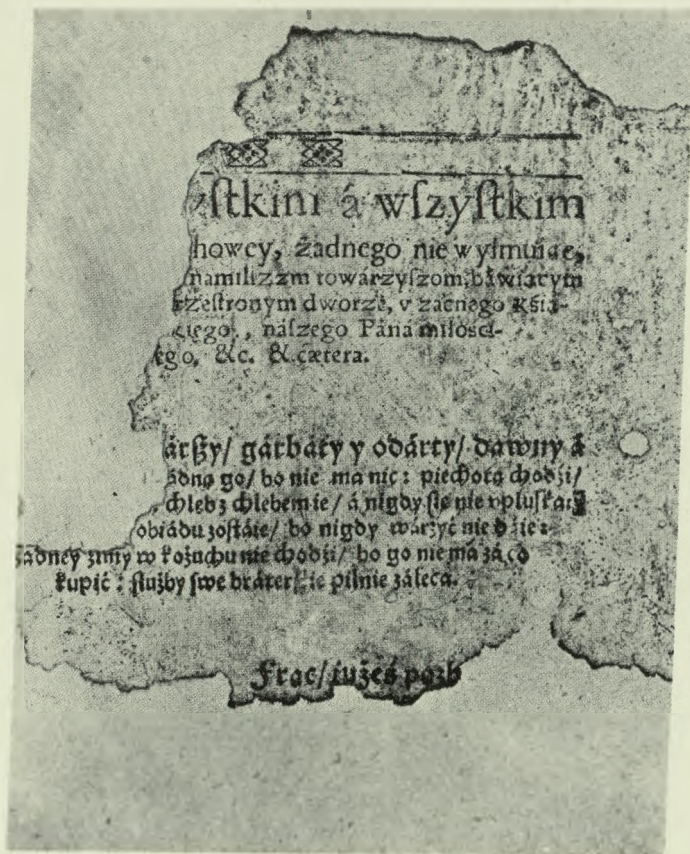 ſtkim á wſzyſtkim
howcy, żadnego nie wyimuiąc,
namilſzym towárzyſzom, báwiącym
rzeſtronym dworze, v zacnego Kśią-
cięgo, náſzego Páná miłośći-
ego, &c. & cætera.
árſzy/ gárbáty y odárty/ dawny á
go/ bo nie ma nic: piechotą chodźi/
chleb z chlebem ie/ á nigdy ſię nie
obiádu zoſtáie/ bo nigdy wárzyć nie
żadney źimy w kożuchu nie chodźi/ bo go nie má zá co
kupić: ſłużby ſwe bráterſkie pilnie záleca.
Frąc/ iużeś pozb